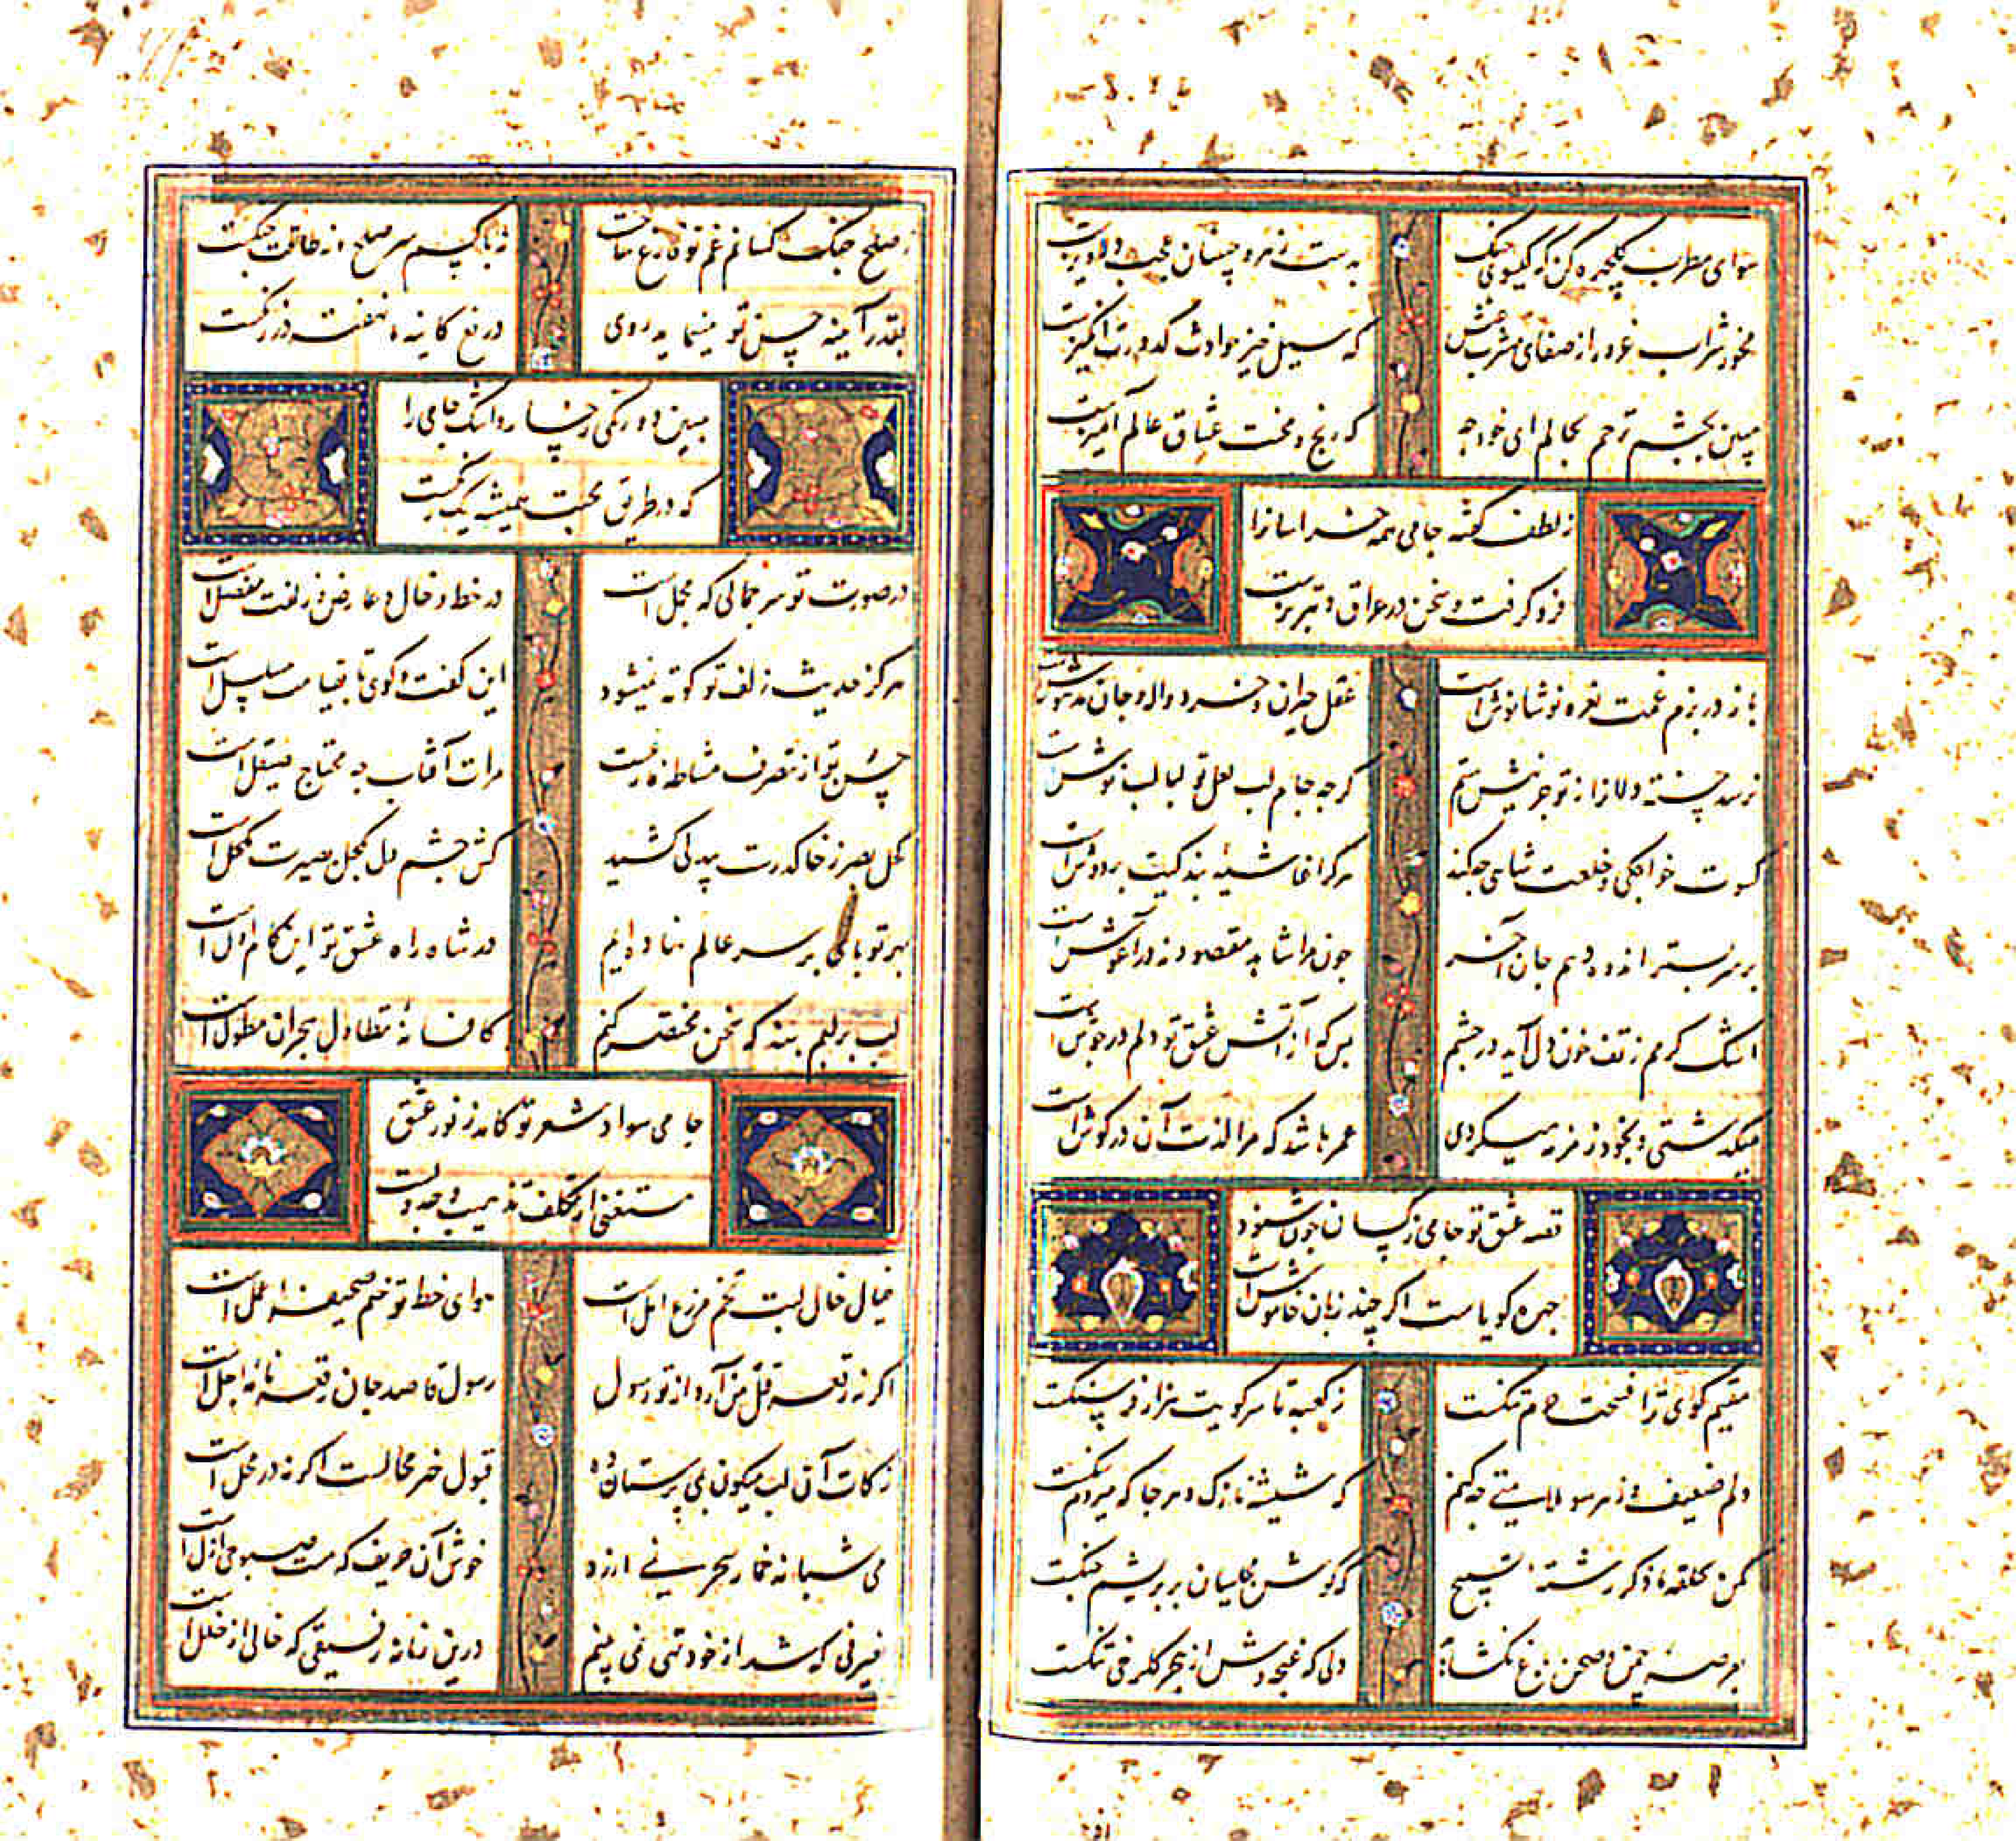 هوای مطرب گلچهره کن که گیسوی چنگ به دست زهره جبینان عجب دلاویزست
مخور شراب غرور از صفای مشرب عیش که سیل خیز حوادث کدورت انگیزست
ببین بچشم ترحم بحالم ای خواجه که رنج و محنت عشاق عالم آمیزست
ز لطف گفته جامی همه خراسانرا
فرو گرفت و سخن در عراق و تبریزست
باز در بزم غمت نعره نوشانوش است عقل حیران و خرد واله و جان مدهوش است
نرسد خسته دلانرا ز تو جز نیش ستم گرچه جام لب لعل تو لبالب نوش است
کسوت خواجگی و خلعت شاهی چه کند هرکرا غاشیهٔ بندگیت بر دوش است
بر سر بستر اندوه دهم جان آخر چون مرا شاهد مقصود نه در آغوش است
اشک گرمم ز تف خون دل آید در چشم بس که از آتش عشق تو دلم در جوش است
میگذشتی و بخود زمزمه میکردی عمر باشد که مرا لذت آن در گوش است
قصه عشق تو جامی ز کسان چون شنود
چهره گویاست اگر چند زبان خاموش است
مقیم کوی ترا فسحت حرم تنگست ز کعبه تا سر کویت هزار فرسنگست
دلم ضعیف و ز هر سو ملامتی چه کنم که شیشه نازک و هر جا که میروم سنگست
مکن بحلقه ما ذکر رشتهٔ تسبیح که گوش مجلسیان بر بریشم چنگست
بعرصه چمن و صحن باغ نگشاید دلی که غنچه وش از هجر گلرخی تنگست
ز صلح جنگ کسانم غم تو فارغ ساخت که با کیم سر صلح از طاقت جنگست
بقدر آینه حسن تو مینماید روی دریغ کاینهٔ ما نهفته در زنگست
مبین دو رنگی رخساره و اشک جامی را
که در طریق محبت همیشه یک رنگست
در صورت تو سر جمالی که مجمل است در خط و خال و عارض و زلفت مفصل است
هرگز حدیث زلف تو کوته نمیشود این گفت و گوی تا بقیامت مسلسل است
حسن تو از تصرف مشاطه فارغست مرآت آفتاب چه محتاج صیقل است
کحل بصر ز خاک درت بیدلی کشید کش چشم دل بکحل بصیرت مکحل است
بهر تو پای بر سر عالم نهاده ایم در شاه راه عشق تو این گام اول است
لب بر لبم بنه که سخن مختصر کنم کافسانهٔ تطاول هجران مطول است
جامی سواد شعر تو کامد ز نور عشق
مستغنی از تکلف تذهیب و جدول است
خیال خال لبت تخم مزرع امل است هوای خط تو ختم صحیفهٔ عمل است
اگر نه رقعه قتل من آرد از تو رسول رسول قاصد جان رقعه نامهٔ اجل است
زکات آن لب میگون بمی پرستان ده قبول خیر محالست اگر نه در محل است
می شبانه خمار سحر نمی ارزد خوش آن حریف که مست صبوحی ازل است
قرینی که شد از خود تهی نمی بینم درین زمانه رفیقی که خالی از خلل است